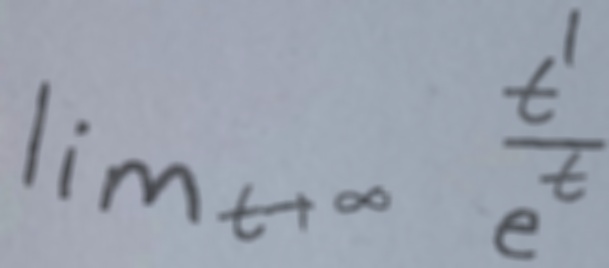 lim_{t→∞} \frac{t^1}{e^t}